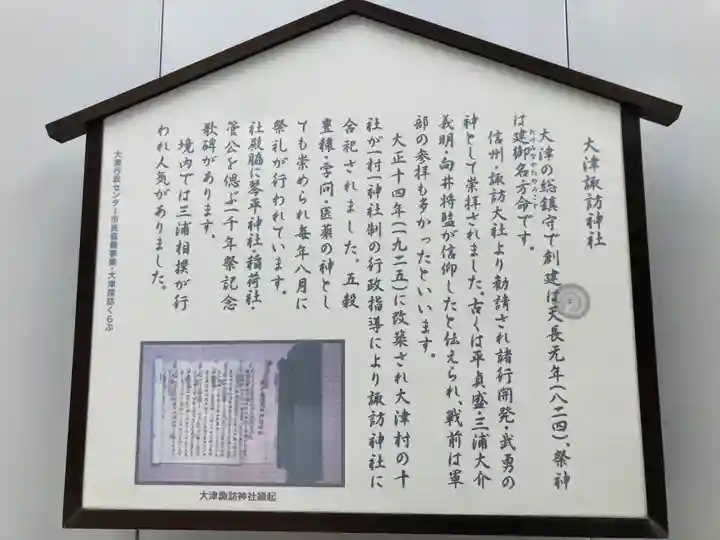 大津諏訪神社
大津の総鎮守で創建は天長元年(八二四)、祭神
は建御名方命です。
たけみなかたのみこと
信州・諏訪大社より勧請され諸行開発・武勇の
神として崇拝されました。古くは平貞盛・三浦大介
義明・向井将監が信仰したと伝えられ、戦前は軍
部の参拝も多かったといいます。
大正十四年(一九二五)に改築され大津村の十
社が一村一神社制の行政指導により諏訪神社に
合祀されました。五穀
豊穣・学問・医薬の神とし
ても崇められ毎年八月に
祭礼が行われています。
社殿脇に琴平神社・稲荷社・
菅公を偲ぶ一千年祭記念
歌碑があります。
境内では三浦相撲が行
われ人気がありました。
大津行政センター市民協働事業・大津探訪くらぶ
大津諏訪神社縁起